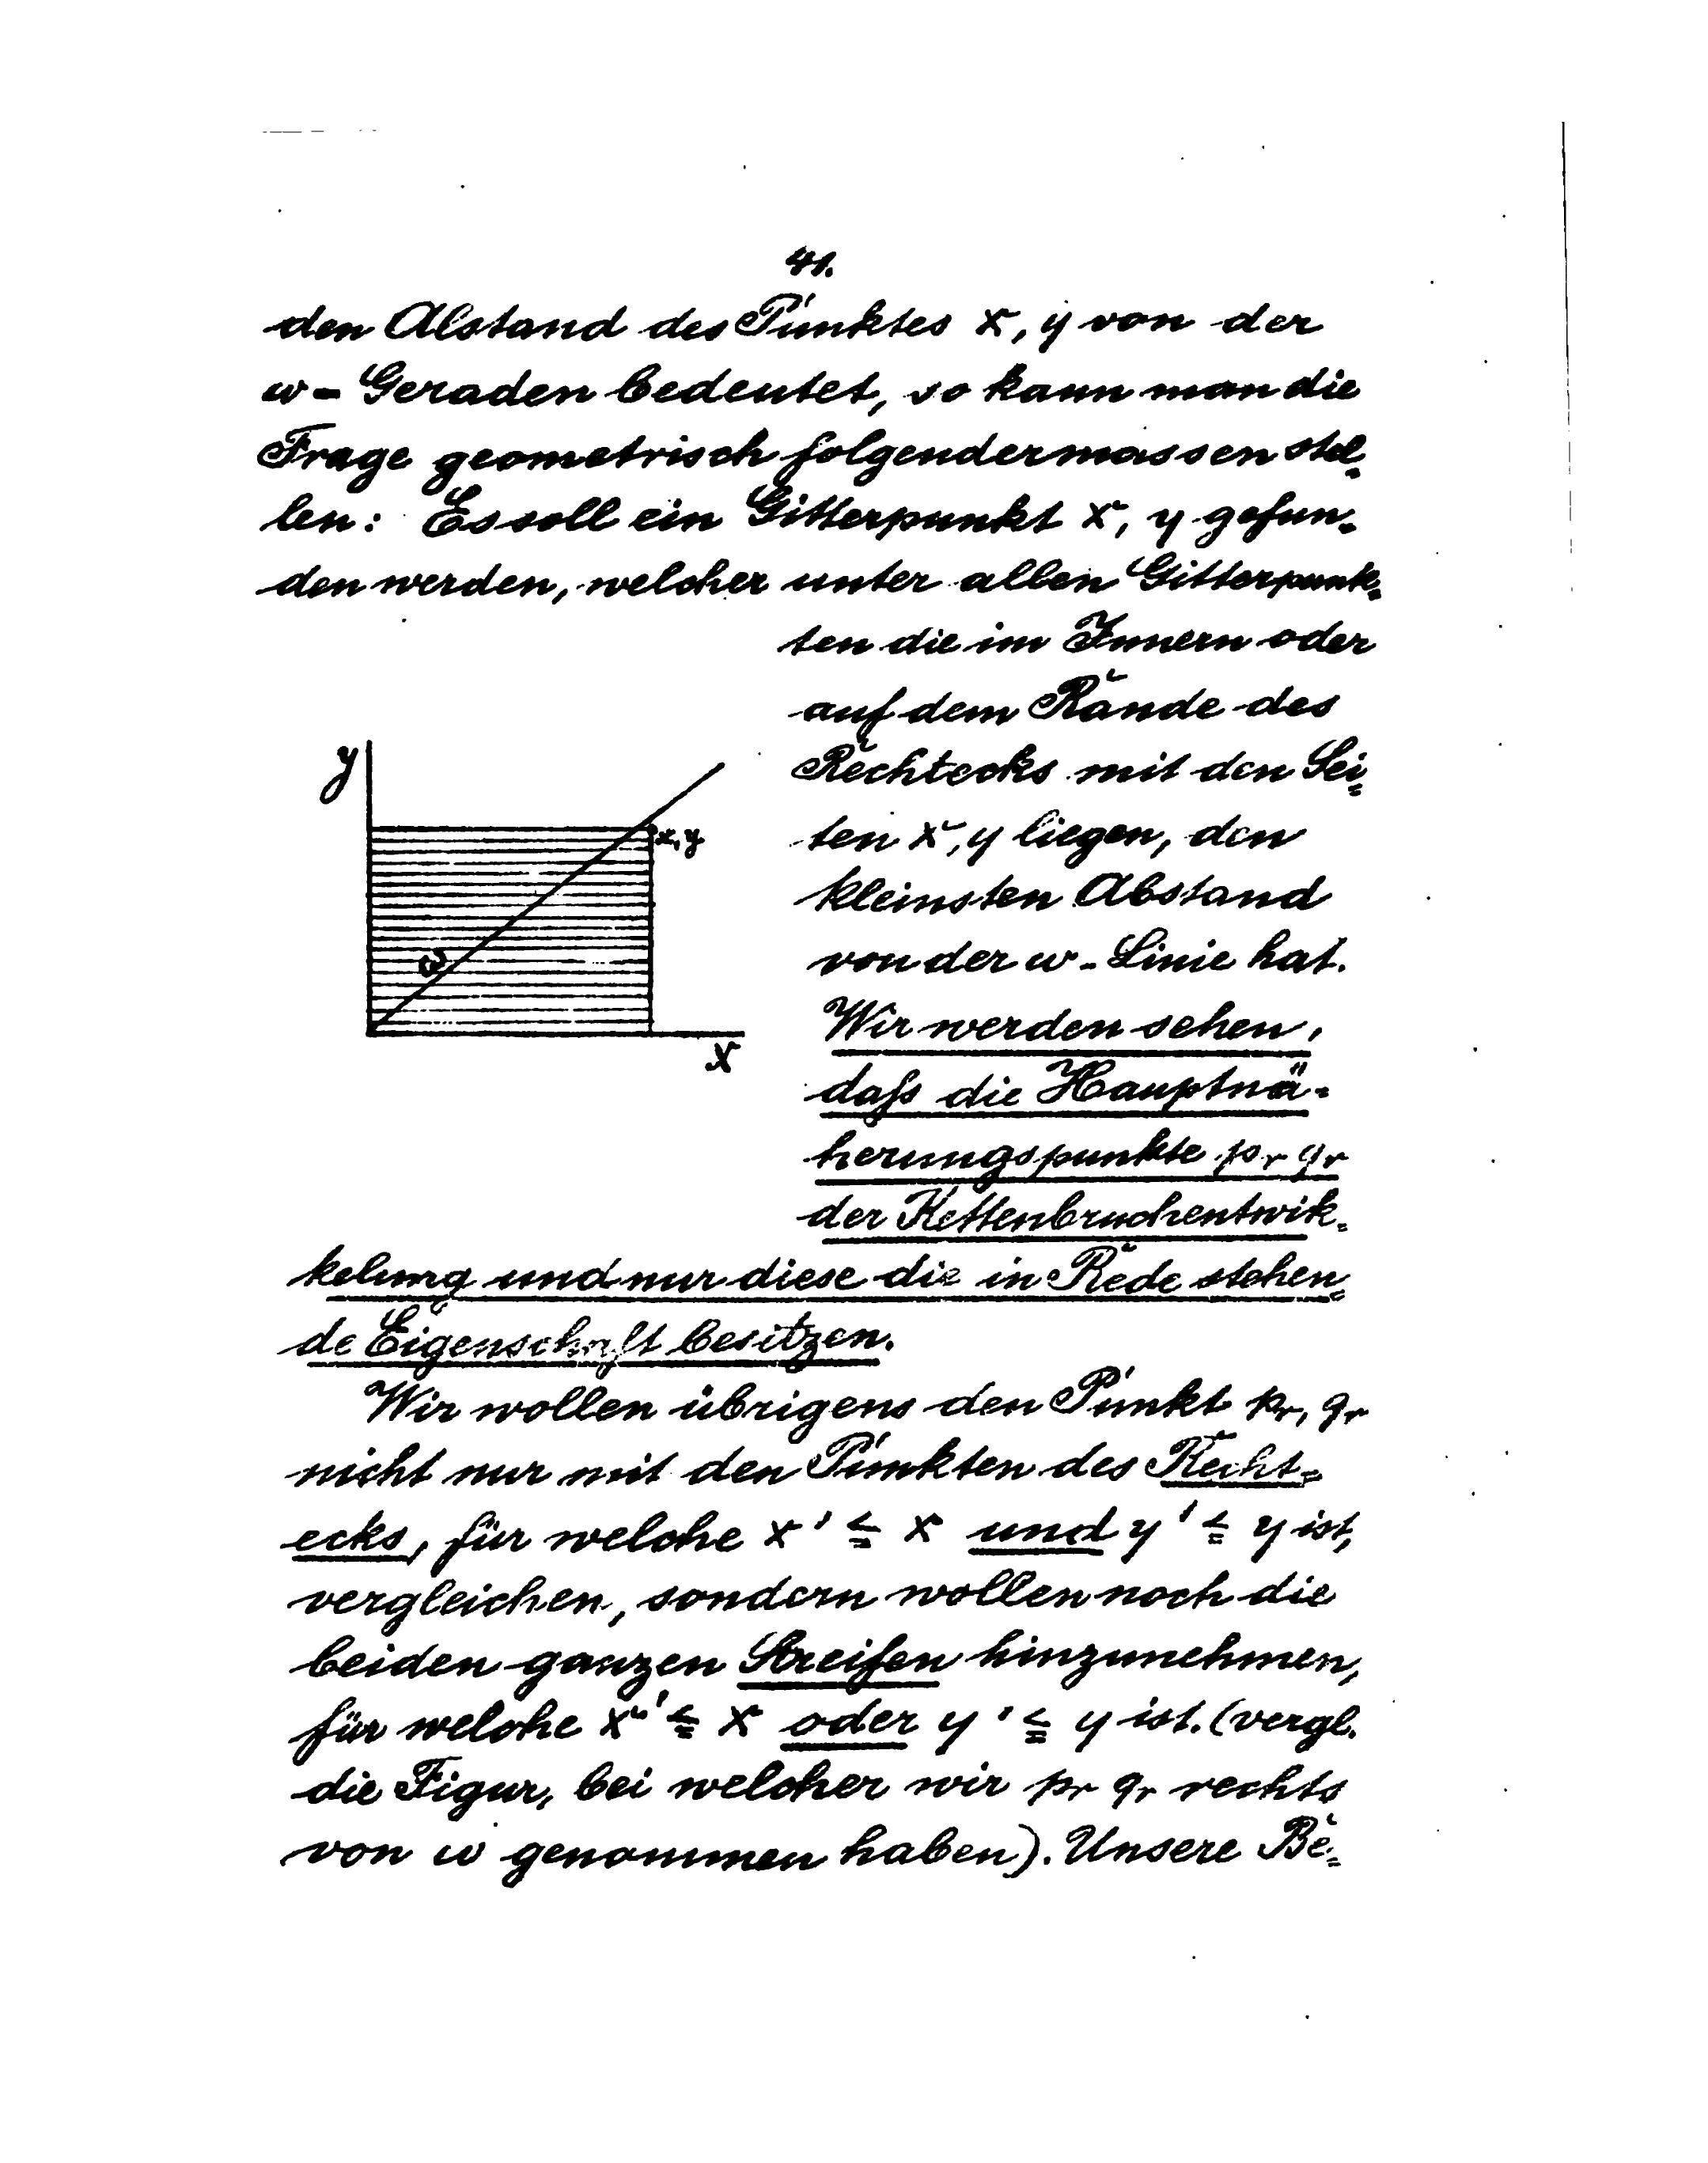 41.
den Abstand des Punktes x, y von der
w-Geraden bedeutet, so kann man die
Frage geometrisch folgendermassen stel=
len: Es soll ein Gitterpunkt x, y gefun=
den werden, welcher unter allen Gitterpunk=
ten die im Innern oder
auf dem Rande des
Rechtecks mit den Sei=
ten x, y liegen, den
kleinsten Abstand
von der w-Linie hat.
Wir werden sehen,
daß die Hauptnä=
herungspunkte pr qr
der Kettenbruchentwik=
kelung und nur diese die in Rede stehen=
de Eigenschaft besitzen.
y
x, y
ω
x
Wir wollen übrigens den Punkt pr, qr
nicht nur mit den Punkten des Recht=
ecks, für welche x' ≦ x und y' ≦ y ist,
vergleichen, sondern wollen noch die
beiden ganzen Streifen hinzunehmen,
für welche x' ≦ x oder y' ≦ y ist. (vergl.
die Figur, bei welcher wir pr qr rechts
von w genommen haben). Unsere Be=